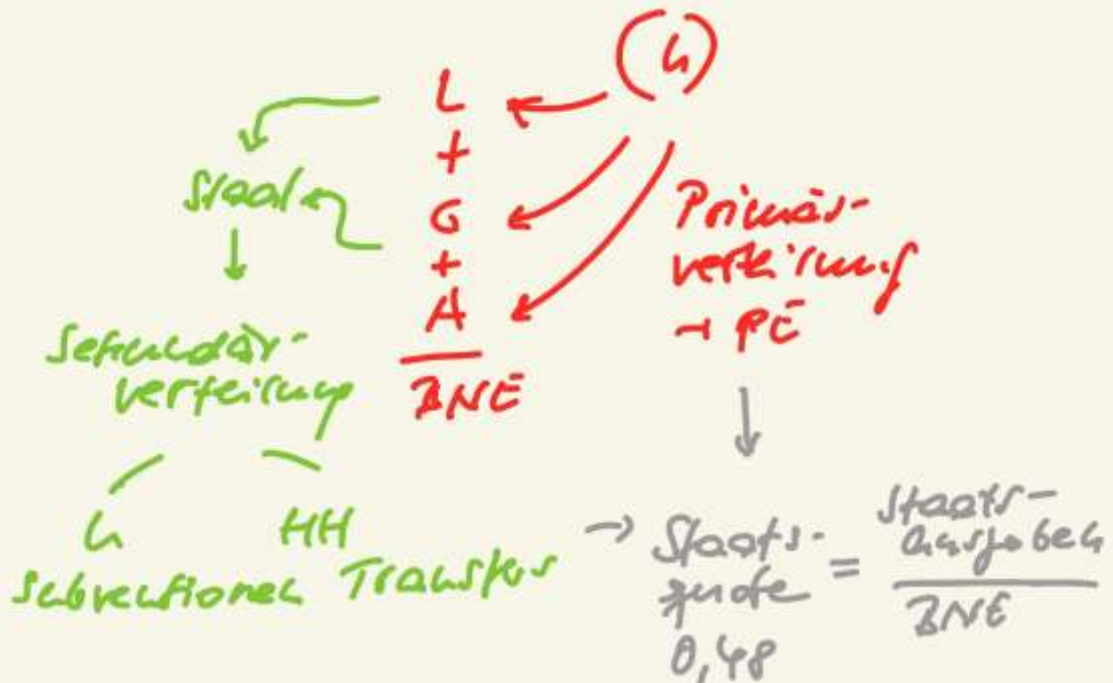 (U)
L
+
G
+
A
BNE
Primär-
verteilung
→ PE
Staat
Sekundär-
verteilung
U
Subventionen
HH
Transfers
→ Staats-
quote
0,48
=
Staats-
ausgaben
BNE